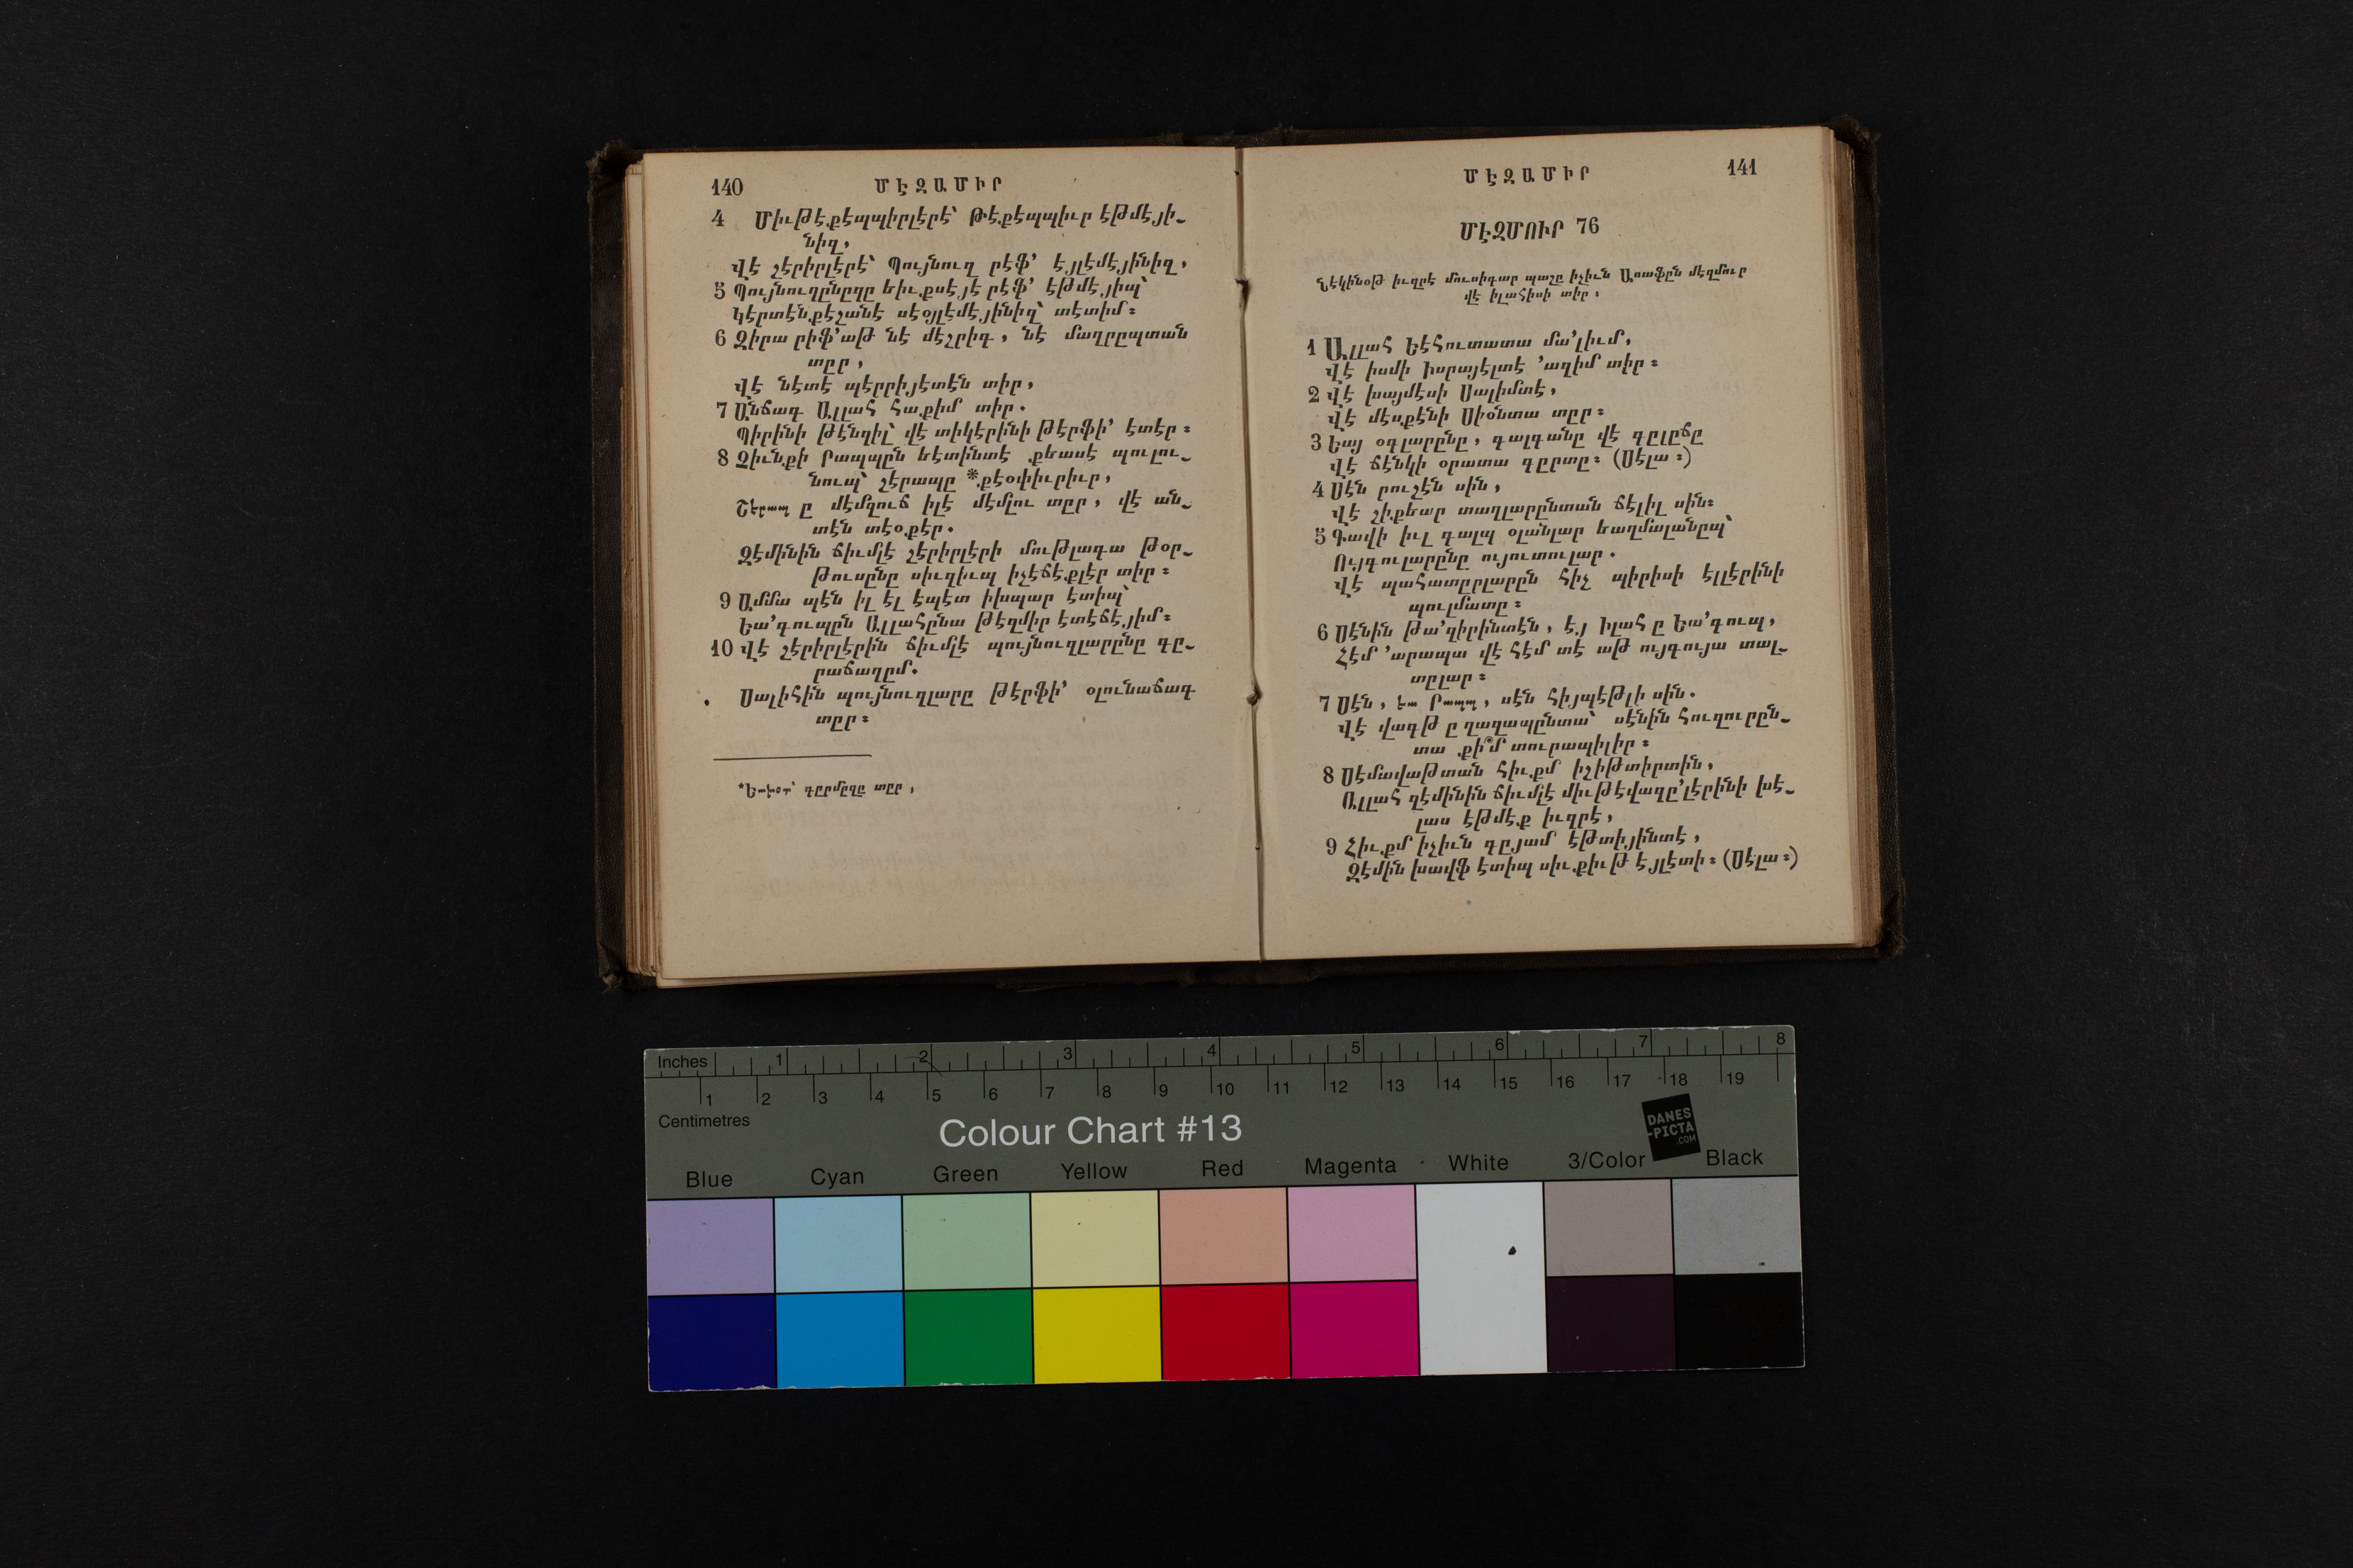 140 ՄԷԶԱՄԻՐ
4 Միւթէքէպպիրլէրէ՝ Թէքէպպիւր էթմէյի-
նիզ,
Վէ շէրիրլէրէ՝ Պույնուզ րէֆ՚ էյլէմէյինիզ,
5 Պույնուզընըզը եիւքսէյէ րէֆ՚ էթմէյիպ՝
Կէրտէնքէշանէ սէօյլէմէյինիզ՝ տէտիմ։
6 Զիրա րիֆ՚աթ նէ մէշրիգ, նէ մաղրըպտան
տըր,
Վէ նէտէ պէրրիյէտէն տիր,
7 Անճագ Ալլահ հաքիմ տիր.
Պիրինի թէնզիլ՝ վէ տիկէրինի թէրֆի՚ էտէր։
8 Զիւնքի Րապպըն եէտինտէ քեասէ պուլու-
նուպ՝ շէրապը *քէօփիւրիւր,
Շէրապ ը մէմզուճ իլէ մէմլու տըր, վէ ան-
տէն տէօքէր.
Զէմինին ճիւմլէ շէրիրլէրի մութլագա թօր-
թուսընը սիւզիւպ իչէճէքլէր տիր։
9 Ամմա պէն իլ էլ էպէտ իխպար էտիպ՝
Եա՚գուպըն Ալլահընա թէզմիր էտէճէյիմ։
10 Վէ շէրիրլէրին ճիւմլէ պույնուզլարընը գը-
րաճաղըմ.
Սալիհին պույնուզլարը թէրֆի՚ օլունաճագ
տըր։
գըրմըզը տըր,
ՄԷԶԱՄԻՐ 141
ՄԷԶՄՈՒՐ 76
Նէկինօթ իւզրէ մուսիգար պաշը իչիւն Ասաֆըն մէզմուր
վէ իլահիսի տիր։
1 Ալլահ Եէհուտատա մա՚լիւմ,
Վէ իսմի Իսրայէլտէ ՚ազիմ տիր։
2 Վէ խայմէսի Սալիմտէ,
Վէ մէսքէնի Սիօնտա տըր։
3 Եայ օգլարընը, գալգանը վէ գըլըճը
Վէ ճէնկի օրատա գըրտը։ (Սէլա։)
4 Սէն րուշէն սին,
Վէ շիքեար տաղլարընտան ճէլիլ սին։
5 Գավի իւլ գալպ օլանլար եաղմալանըպ՝
Ույգուլարընը ույուտուլար.
Վէ պահատըրլարըն հիչ պիրիսի էլլէրինի
պուլմատը։
6 Սէնին թա՚զիրինտէն, էյ Իլահ ը Եա՚գուպ,
Հէմ ՚արապա վէ հէմ տէ աթ ույգույա տալ-
տըլար։
7 Սէն, եա Րապպ, սէն հիյպէթլի սին.
Վէ վագթ ը ղազապընտա՝ սէնին հուզուրըն-
տա քի՞մ տուրապիլիր։
8 Սէմավաթտան հիւքմ իշիթտիրտին,
Ալլահ զէմինին ճիւմլէ միւթէվազը՚լէրինի խէ-
լաս էթմէք իւզրէ,
9 Հիւքմ իչիւն գըյամ էթտիյինտէ,
Զէմին խավֆ էտիպ սիւքիւթ էյլէտի։ (Սէլա։)
Inches 1 2 3 4 5 6 7 8
1 2 3 4 5 6 7 8 9 10 11 12 13 14 15 16 17 18 19
Centimetres
Colour Chart #13
DANES
-PICTA
.COM
Blue Cyan Green Yellow Red Magenta White 3/Color Black